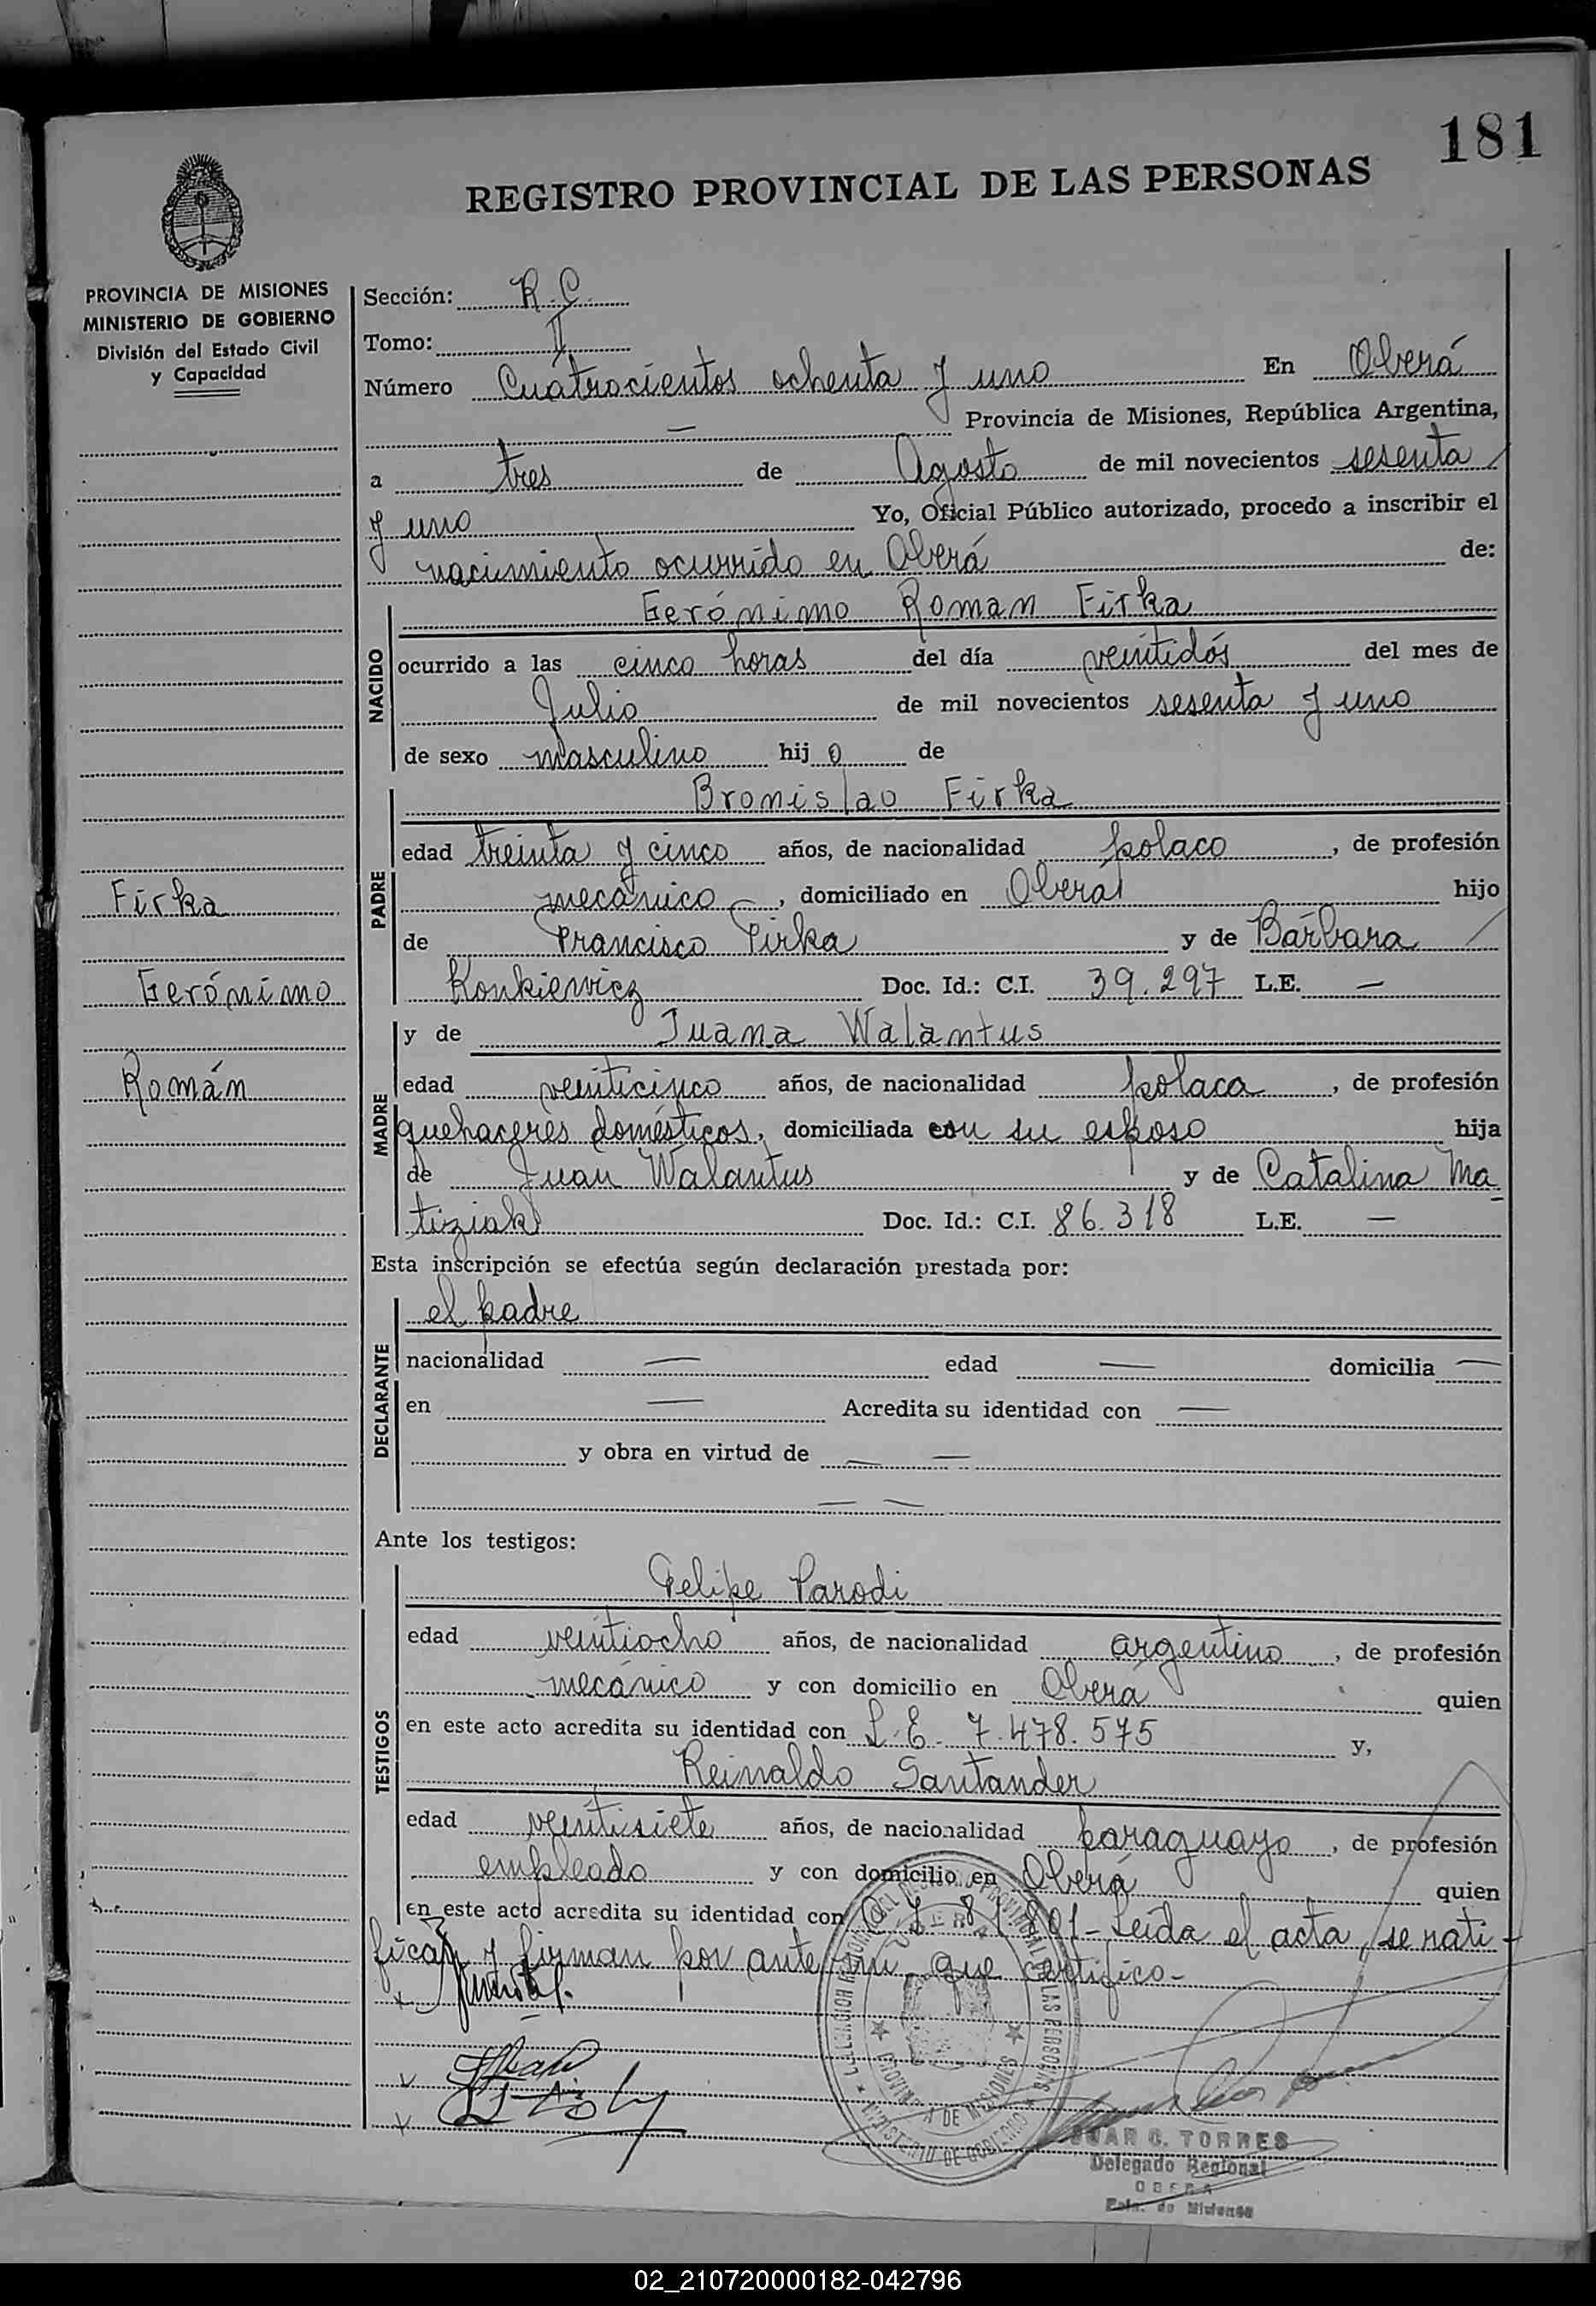 181
REGISTRO PROVINCIAL DE LAS PERSONAS
PROVINCIA DE MISIONES
MINISTERIO DE GOBIERNO
División del Estado Civil
y Capacidad
Sección: R.C.
Tomo: II
Número Cuatrocientos ochenta y uno En Oberá
— Provincia de Misiones, República Argentina,
a tres de Agosto de mil novecientos sesenta
y uno Yo, Oficial Público autorizado, procedo a inscribir el
nacimiento ocurrido en Oberá de:
NACIDO
Gerónimo Roman Firka
ocurrido a las cinco horas del día veintidós del mes de
Julio de mil novecientos sesenta y uno
de sexo masculino hijo de
PADRE
Bronislao Firka
edad treinta y cinco años, de nacionalidad polaco, de profesión
mecánico, domiciliado en Oberá hijo
de Francisco Firka y de Bárbara
Konkiewicz Doc. Id.: C.I. 39.297 L.E. —
Firka
Gerónimo
Román
MADRE
y de Juana Walantus
edad veinticinco años, de nacionalidad polaca, de profesión
quehaceres domésticos, domiciliada con su esposo hija
de Juan Walantus y de Catalina Ma-
tiziak Doc. Id.: C.I. 86.318 L.E. —
Esta inscripción se efectúa según declaración prestada por:
DECLARANTE
el padre
nacionalidad — edad — domicilia —
en — Acredita su identidad con —
y obra en virtud de — —
— —
Ante los testigos:
TESTIGOS
Felipe Parodi
edad veintiocho años, de nacionalidad argentino, de profesión
mecánico y con domicilio en Oberá quien
en este acto acredita su identidad con L.E. 7.478.575 y,
Reinaldo Santander
edad veintisiete años, de nacionalidad paraguayo, de profesión
empleado y con domicilio en Oberá quien
en este acto acredita su identidad con C.I. 81.801- Leída el acta, se rati-
fican y firman por ante mi, que certifico-
MINISTERIO DE GOBIERNO
PROVINCIA DE MISIONES
C. TORRES
Delegado Regional
OBERA
Pcia. de Misiones
02_210720000182-042796